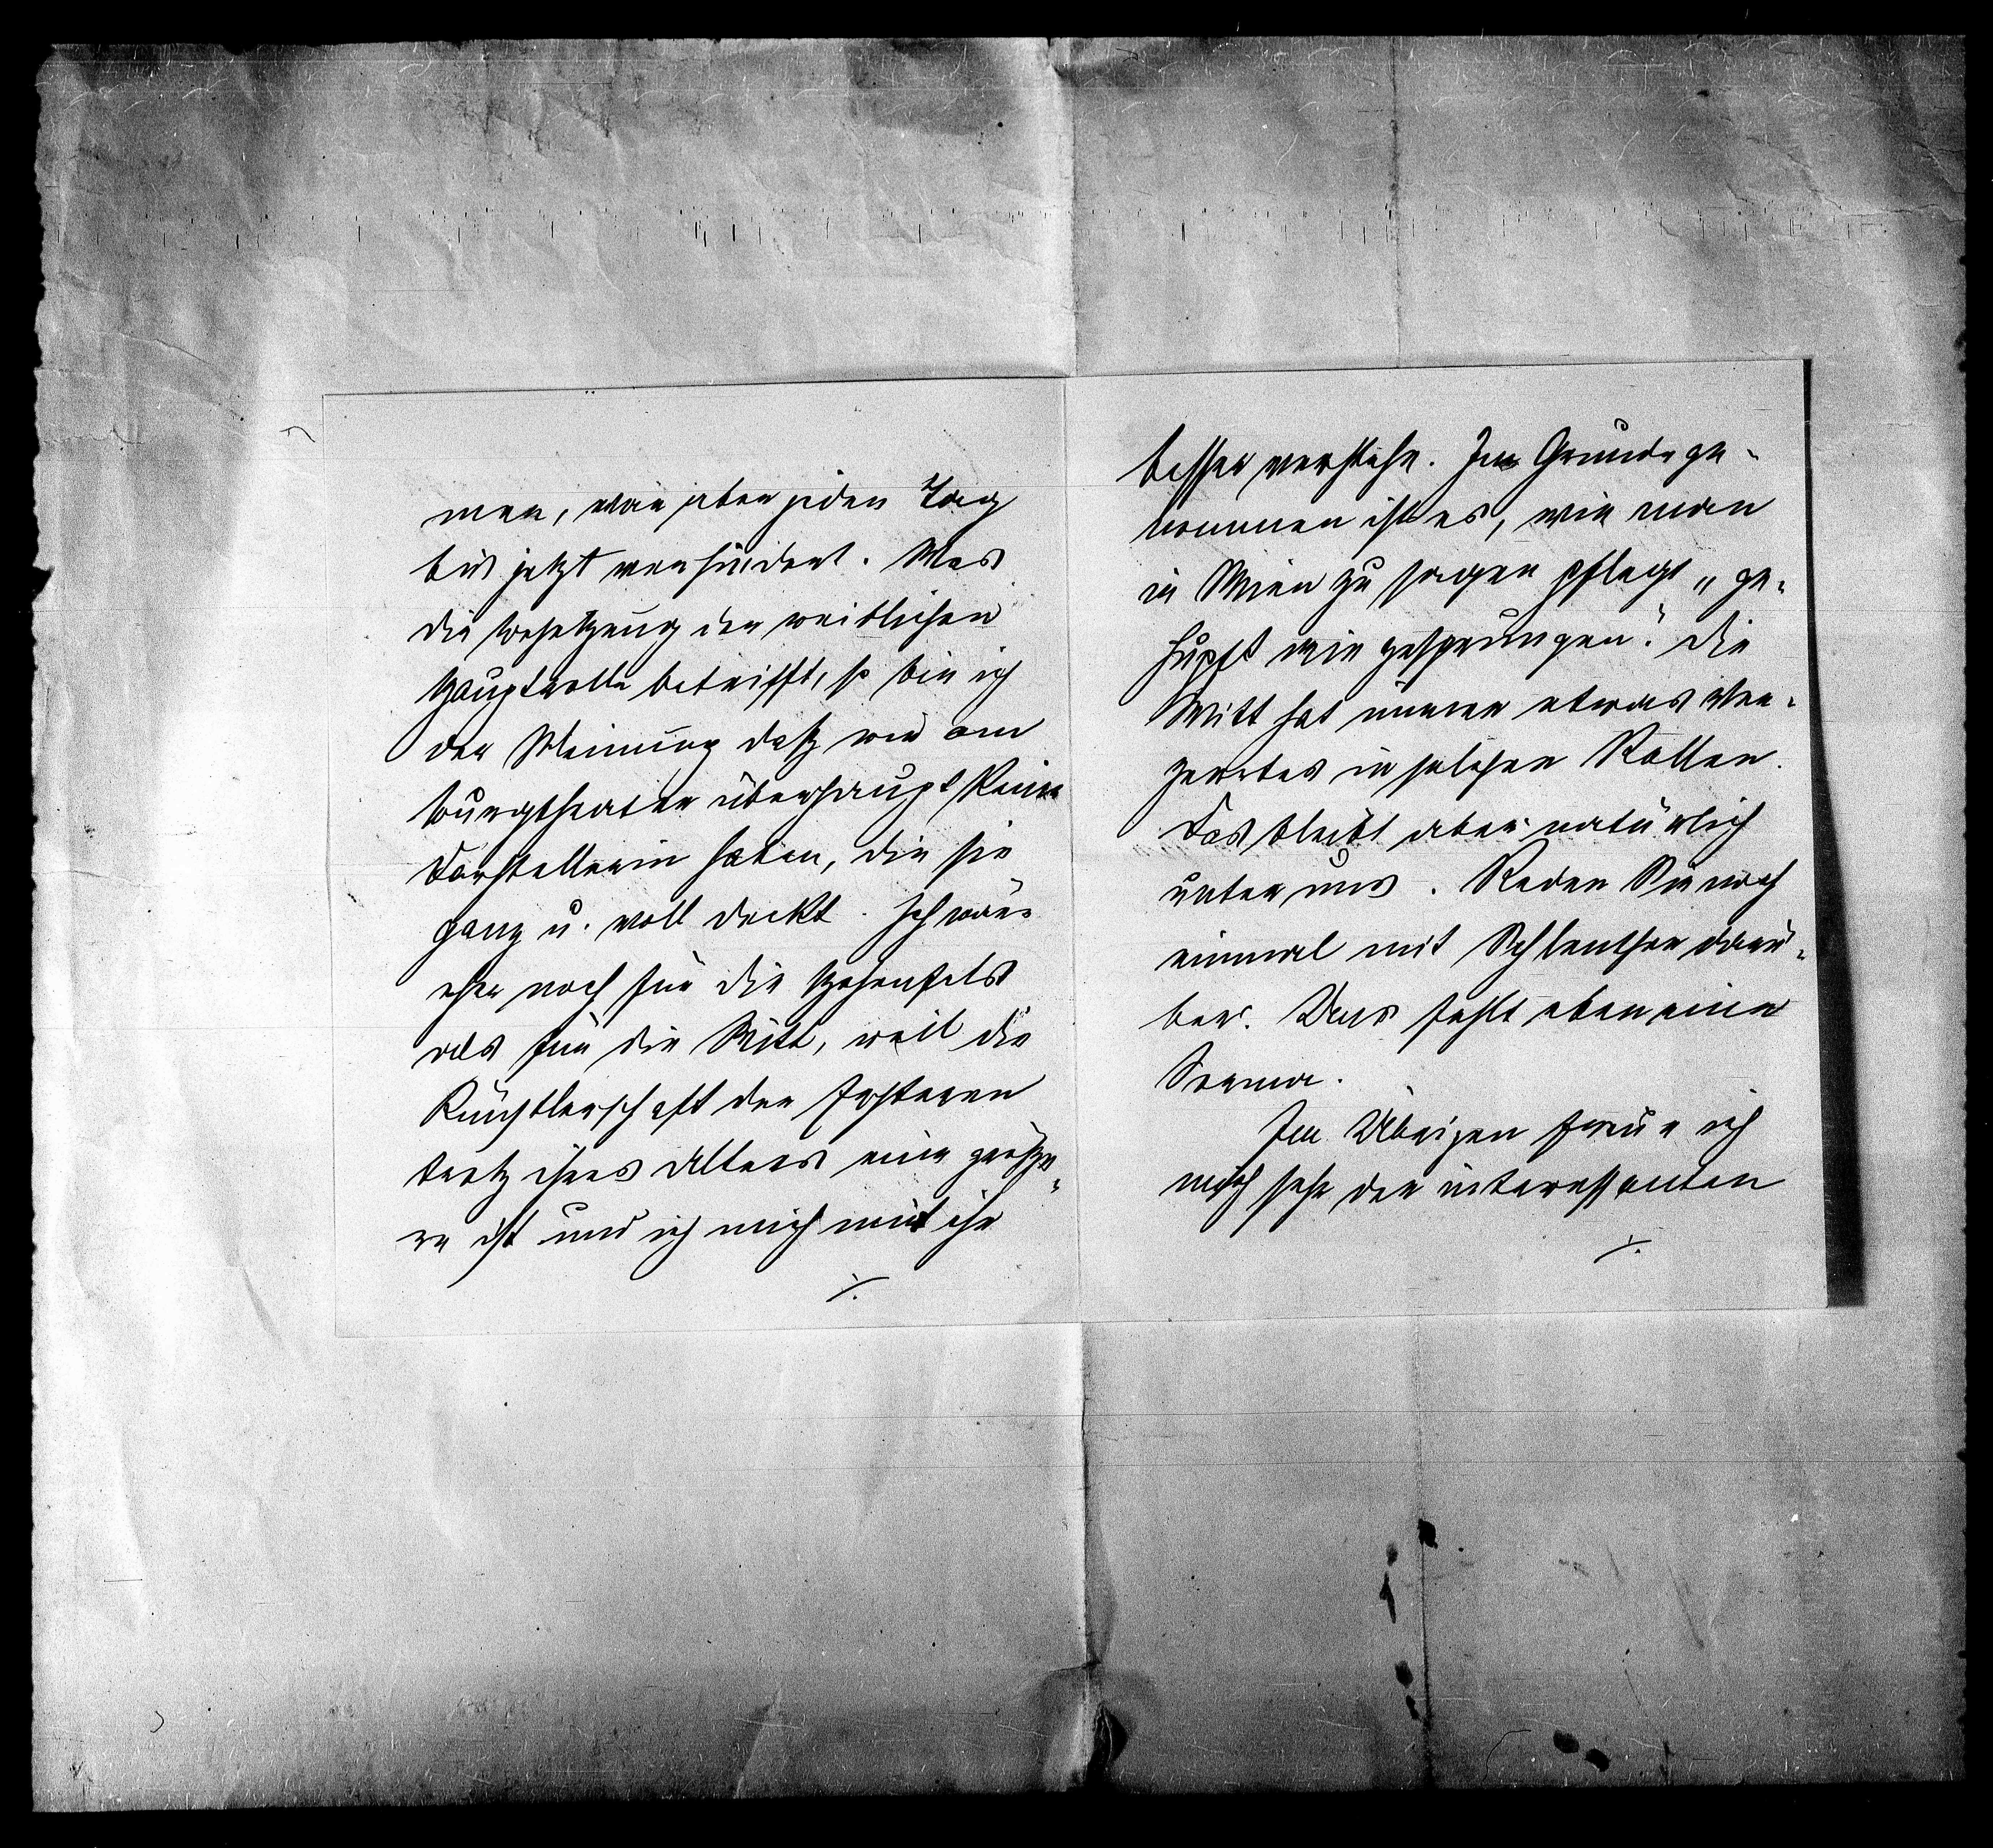 men, war aber jeden Tag
bis jetzt verhindert. Was
die Besetzung der weiblichen
Hauptrolle betrifft, so bin ich
der Meinung daß wir am
Burgtheater überhaupt keine
Darstellerin haben, die sie
ganz u. voll deckt. Ich wäre
eher noch für die Hohenfels
als für die Witt, weil die
Künstlerschaft der Ersteren
trotz ihres Alters eine größe-
re ist und ich mich mit ihr
./.
besser verstehe. Im Grunde ge-
nommen ist es, wie man
in Wien zu sagen pflegt „ge-
hupft wie gesprungen". Die
Witt hat immer etwas Ver-
zerrtes in solchen Rollen.
Das bleibt aber natürlich
unter uns. Reden Sie noch
einmal mit Schlenther darü-
ber. Uns fehlt eben eine
Sorma.
Im Übrigen freue ich
mich sehr der interessanten
./.